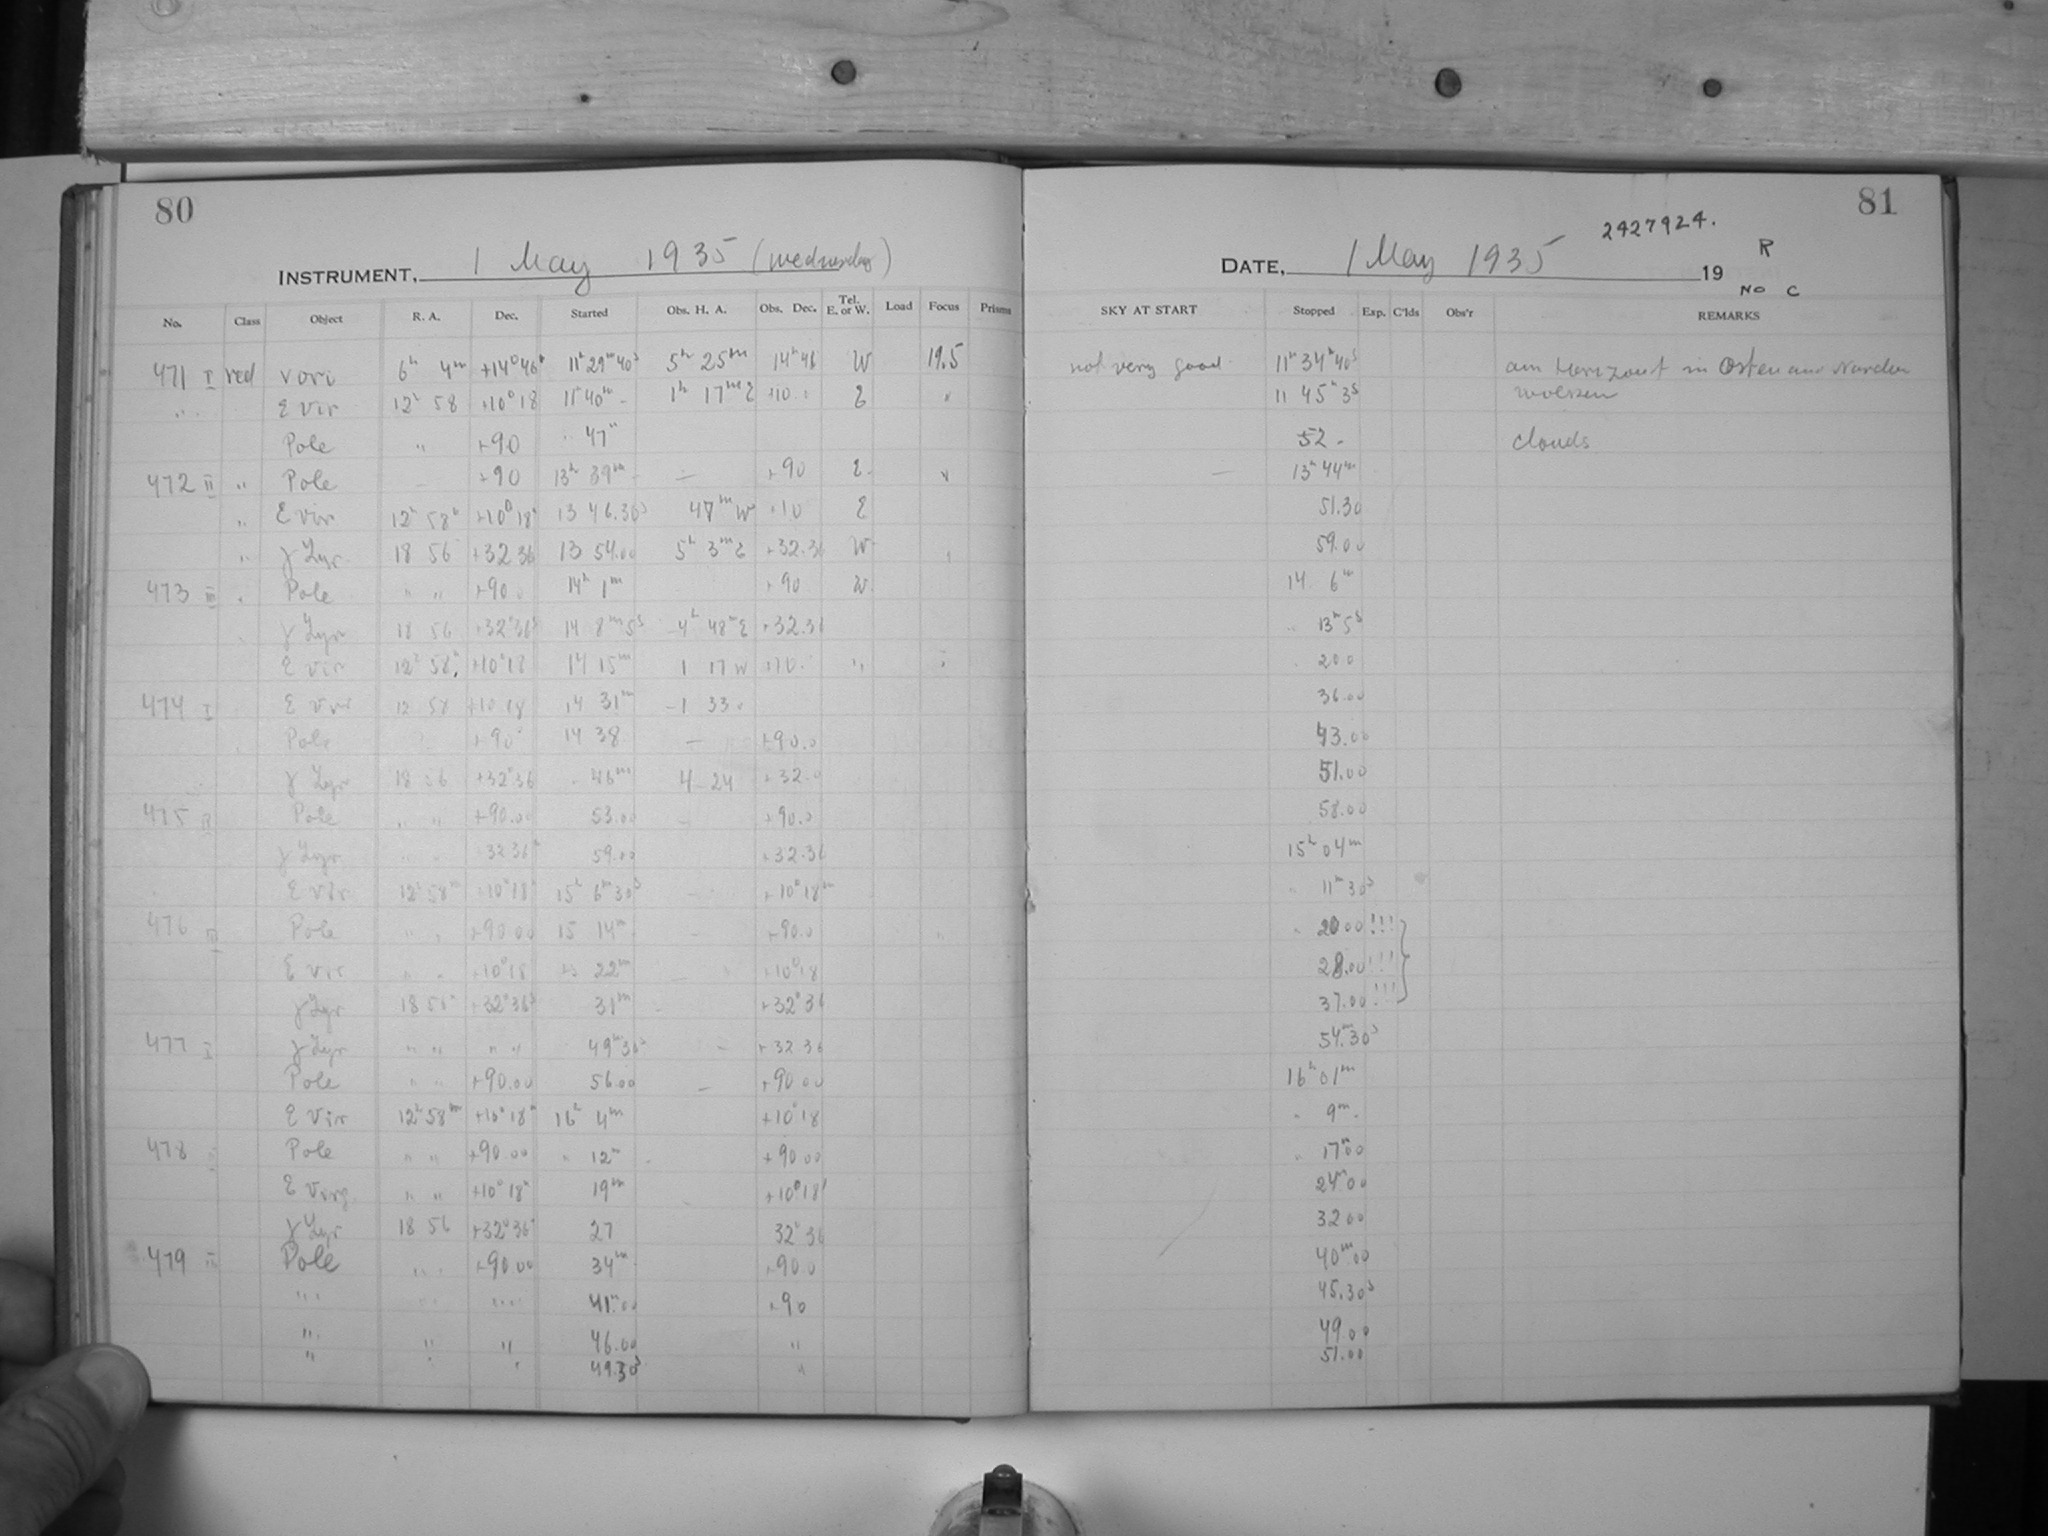 80
INSTRUMENT, 1 May 1935 (Wednesday)
No. Class Object R. A. Dec. Started Obs. H. A. Obs. Dec. Tel. E. or W. Load Focus Prisms
471 I red vOri 6h 4m +14°46' 11h29m40s 5h 25m 14°46 W 19.5
" ε Vir 12h 58 +10°18 11h40m - 1h 17m E +10 E "
Pole " +90 " 47m
472 II " Pole - +90 13h 39m - - +90 E -
" ε Vir 12h 58m +10°18' 13 46.30s 47m W +10 E
" γ Lyr 18 56 +32 36 13 54.00 5h 3m E +32.36 W
473 III " Pole " " +90 14h 1m +90 W
γ Lyr 18 56 +32°36' 14 8m5s -4h 48m E +32.36
ε Vir 12h 58m +10°18 14 15m 1 17 W +10 "
474 I ε Vir 12 58 +10 18 14 31m -1 33
Pole +90° 14 38 - +90.0
γ Lyr 18 56 +32°36 " 46m 4 24 +32.0
475 II Pole " " +90.00 53.00 - +90.0
γ Lyr " " 32 36' 59.00 +32.36
ε Vir 12h 58m +10°18' 15h 6m30s - +10°18m
476 III Pole " " +90.00 15 14m - +90.0
ε Vir " " +10°18 15 22m +10°18
γ Lyr 18 56m +32°36' 31m +32°36
477 I γ Lyr " " " " 49m30s - +32 36
Pole " " +90.00 56.00 - +90 00
ε Vir 12h 58m +10°18' 16h 4m +10°18
478 Pole " " +90.00 " 12m - +90 00
ε Virg. " " +10°18' 19m +10°18'
γ Lyr 18 56 +32°36' 27 32°36
479 III Pole " " +90.00 34m +90 0
" " " " 41m.00 +90
" " " 46.00 "
" " 49.30s "
81
2427924.
DATE, 1 May 1935 19
R
NO C
SKY AT START Stopped Exp. C'lds Obs'r REMARKS
not very good 11h 34m 40s am Horizont in Osten und Norden
11 45m 3s Wolken
52 - clouds
- 13h 44m
51.30
59.00
14 6m
" 13m 5s
" 20 0
36.00
43.00
51.00
58.00
15h 04m
" 11m 30s
" 20 00 !!!
28.00 !!!
37.00 - !!!
54m.30s
16h 01m
" 9m -
" 17m00
24m00
32 00
40m00
45.30s
49.00
51.00